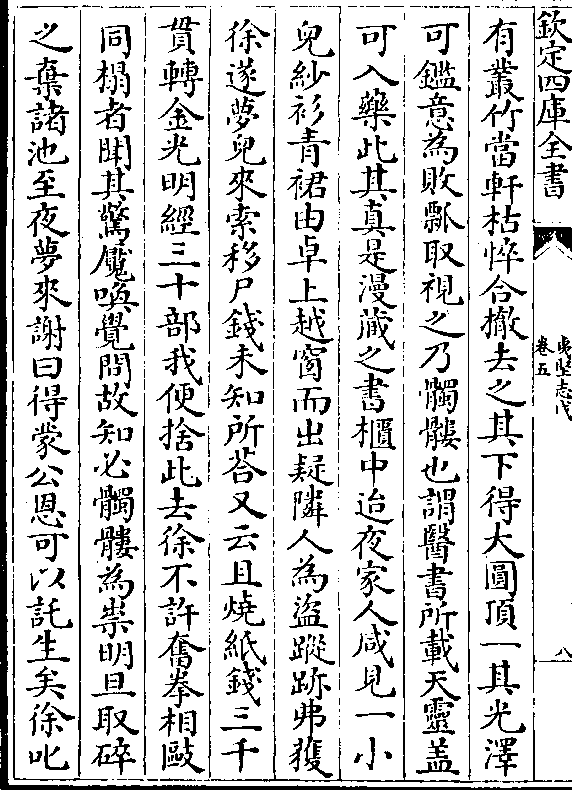 欽定四庫全書
夷堅志戊
卷五
八
有叢竹當軒枯悴合撤去之其下得大圓頂一其光澤
可鑑意為敗瓢取視之乃髑髏也謂醫書所載天靈盖
可入藥此其真是漫藏之書櫃中迨夜家人咸見一小
兒紗衫青裙由卓上越窗而出疑隣人為盜蹤跡弗獲
徐遂夢兒來索移尸錢未知所荅又云且燒紙錢三千
貫轉金光明經三十部我便捨此去徐不許奮拳相敺
同榻者聞其驚魘喚覺問故知必髑髏為祟明旦取碎
之棄諸池至夜夢來謝曰得蒙公恩可以託生矣徐叱